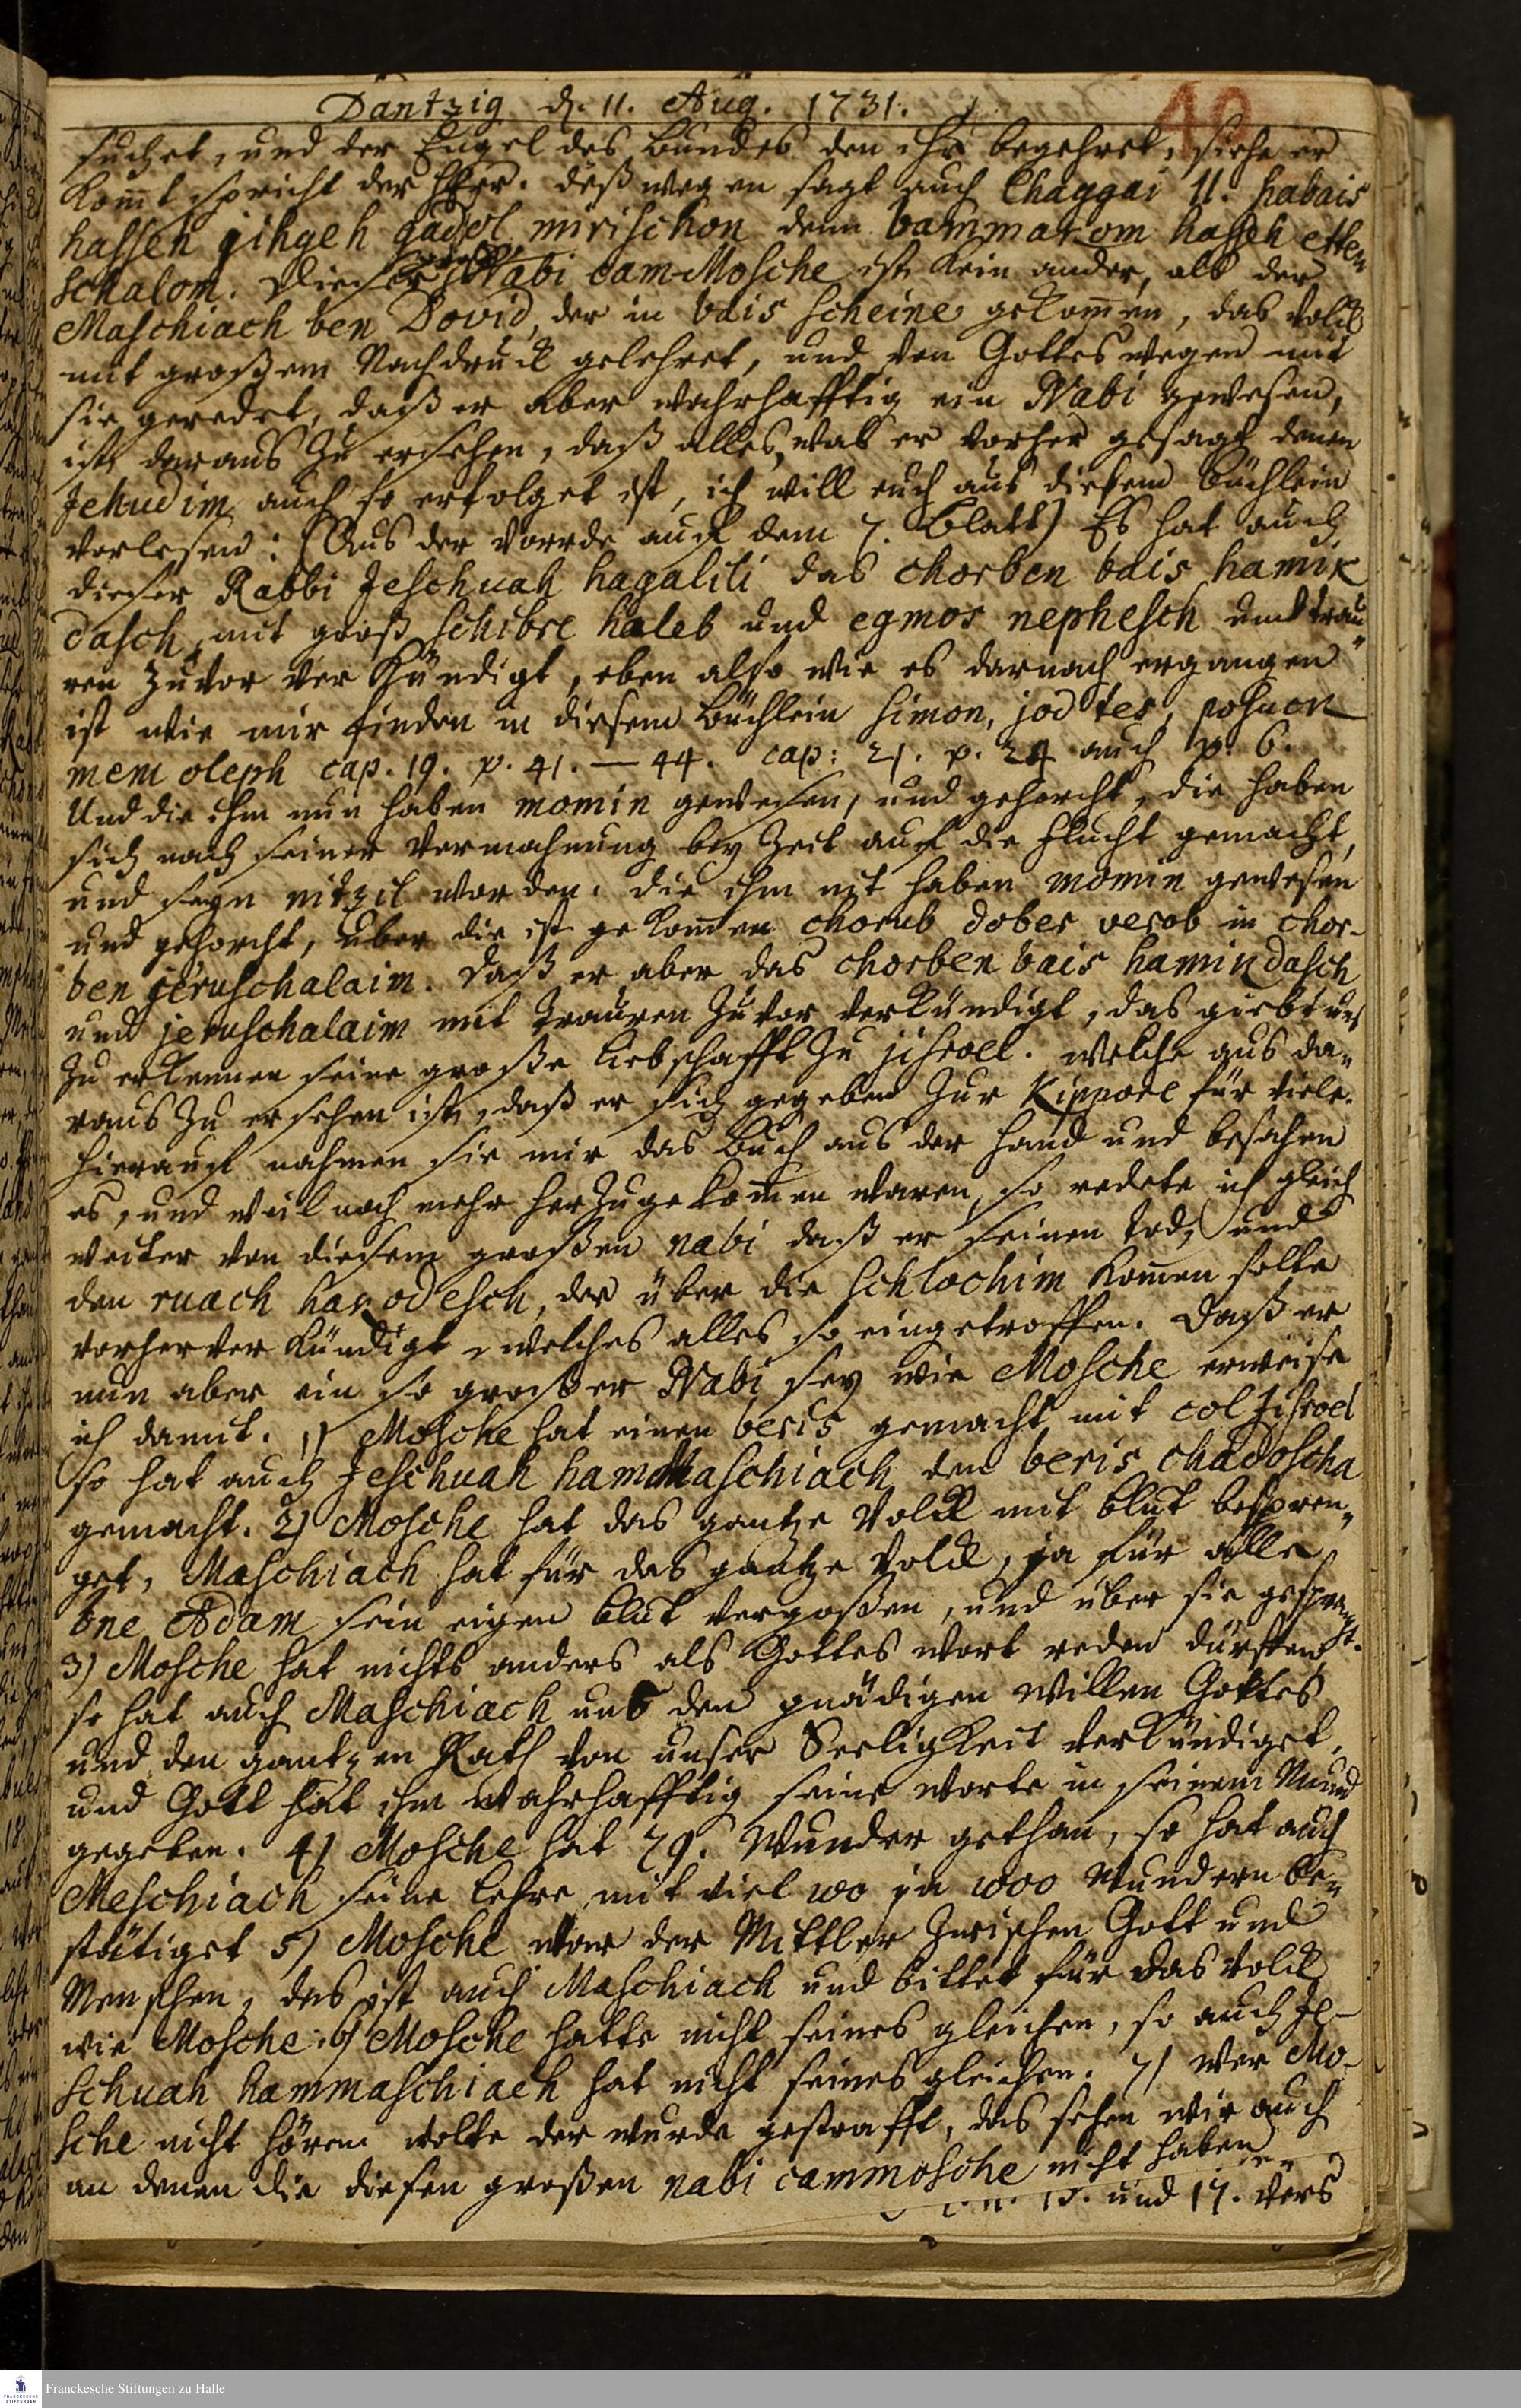 Dantzig d. 11. Aug. 1731.
49
suchet, und der Engel des Bundes den ihr begehret, siehe er
kom̄t spricht der HErr. deßwegen sagt auch Chaggai 11. habais
hasseh jihgeh gadol mirischon denn bammakom hasseh etten
schalom. Dieser Nabi cam-Mosche ist kein ander, als der
Maschiach ben Dovid, der in bais scheine gekom̄en, das Volck
mit großem Nachdruck gelehret, und von Gottes wegen mit
sie geredet, daß er aber wahrhafftig ein Nabi gewesen,
ist daraus zu ersehen, daß alles, was er vorher gesagt denen
Jehudim auch so erfolget ist, ich will euch aus diesem büchlein
vorlesen: (Aus der Vorrde auf dem 7. Blatt) Es hat auch
dieser Rabbi Jeschuah hagalili das chorben bais hamik
dasch, mit groß schibre haleb und egmos nephesch und trau„
ren zuvor ver kündigt, eben also wie es darnach ergangen
ist wie wir finden in diesem Büchlein simon, jod tes, posuck
mem oleph cap. 19. p. 41. — 44. cap: 21. p. 24 auch p. 6.
Und die ihm nun haben momin gewesen, und gehorcht, die haben
sich nach seiner Vermahnung bey Zeit auf die Flucht gemacht,
und seyn nitzil worden. die ihm nit haben momin gewesen
und gehorcht, über die ist gekom̄en chorub dober verob in chor-
ben jeruschalaim. Daß er aber das chorben bais hamikdasch
und jeruschalaim mit Trauren zuvor verkündigt, das giebt uns
zu erkennen seine große Liebschafft zu jisroel. welche aus da„
raus zu ersehen ist, daß er sich gegeben zur Kippore für viele.
hierauf nahmen sie mir das Buch aus der Hand und besahen
es, und weil noch mehr herzugekom̄en waren, so redete ich gleich
weiter von diesem großen nabi daß er seinen Tod, und
den ruach hakodesch, der über die Schlochim kom̄en solte
vorher ver kündigt, welches alles so eingetroffen. Daß er
nun aber ein so großer Nabi sey wie Mosche erweise
ich damit. 1) Mosche hat einen beris gemacht mit col Jisroel
so hat auch Jeschuah hamMaschiach den beris chadoscha
gemacht. 2) Mosche hat das gantze Volck mit blut bespren„
get, Maschiach hat für das gantze Volck, ja für alle
bne Adam sein eigen blut vergoßen, und über sie gesprengt.
3) Mosche hat nichts anders als Gottes wort reden dürffen
so hat auch Maschiach uns den gnädigen willen Gottes
und den gantzen Rath von unser Seeligkeit verkündiget,
und Gott hat ihm wahrhafftig seine worte in seinem Mund
gegeben. 4) Mosche hat 79. Wunder gethan, so hat auch
Meschiach seine Lehre mit viel 100 ja 1000 Wundern be„
stätiget 5) Mosche war der Mittler zwischen Gott und
Menschen, das ist auch Maschiach und bittet für das Volck
wie Mosche. 6) Mosche hatte nicht seines gleichen, so auch Je-
schuah hammaschiach hat nicht seines gleichen. 7) wer Mo-
sche nicht hören wolte der wurde gestrafft, das sehen wir auch
an denen die diesen großen nabi cammosche nicht haben
und 17. vers
Franckesche Stiftungen zu Halle